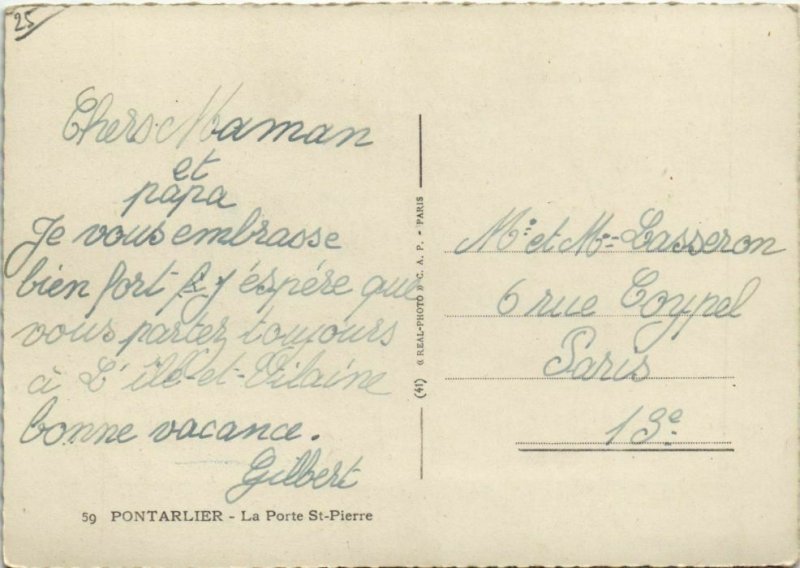 25
Chers Maman
et
papa
Je vous embrasse
bien fort & j'éspére que
vous partez toujours
à L'île-et-Vilaine
bonne vacance.
Gilbert
59 PONTARLIER - La Porte St-Pierre
(41) « REAL-PHOTO » C. A. P. - PARIS
Mr et Mme Lasseron
6 rue Coypel
Paris
13e